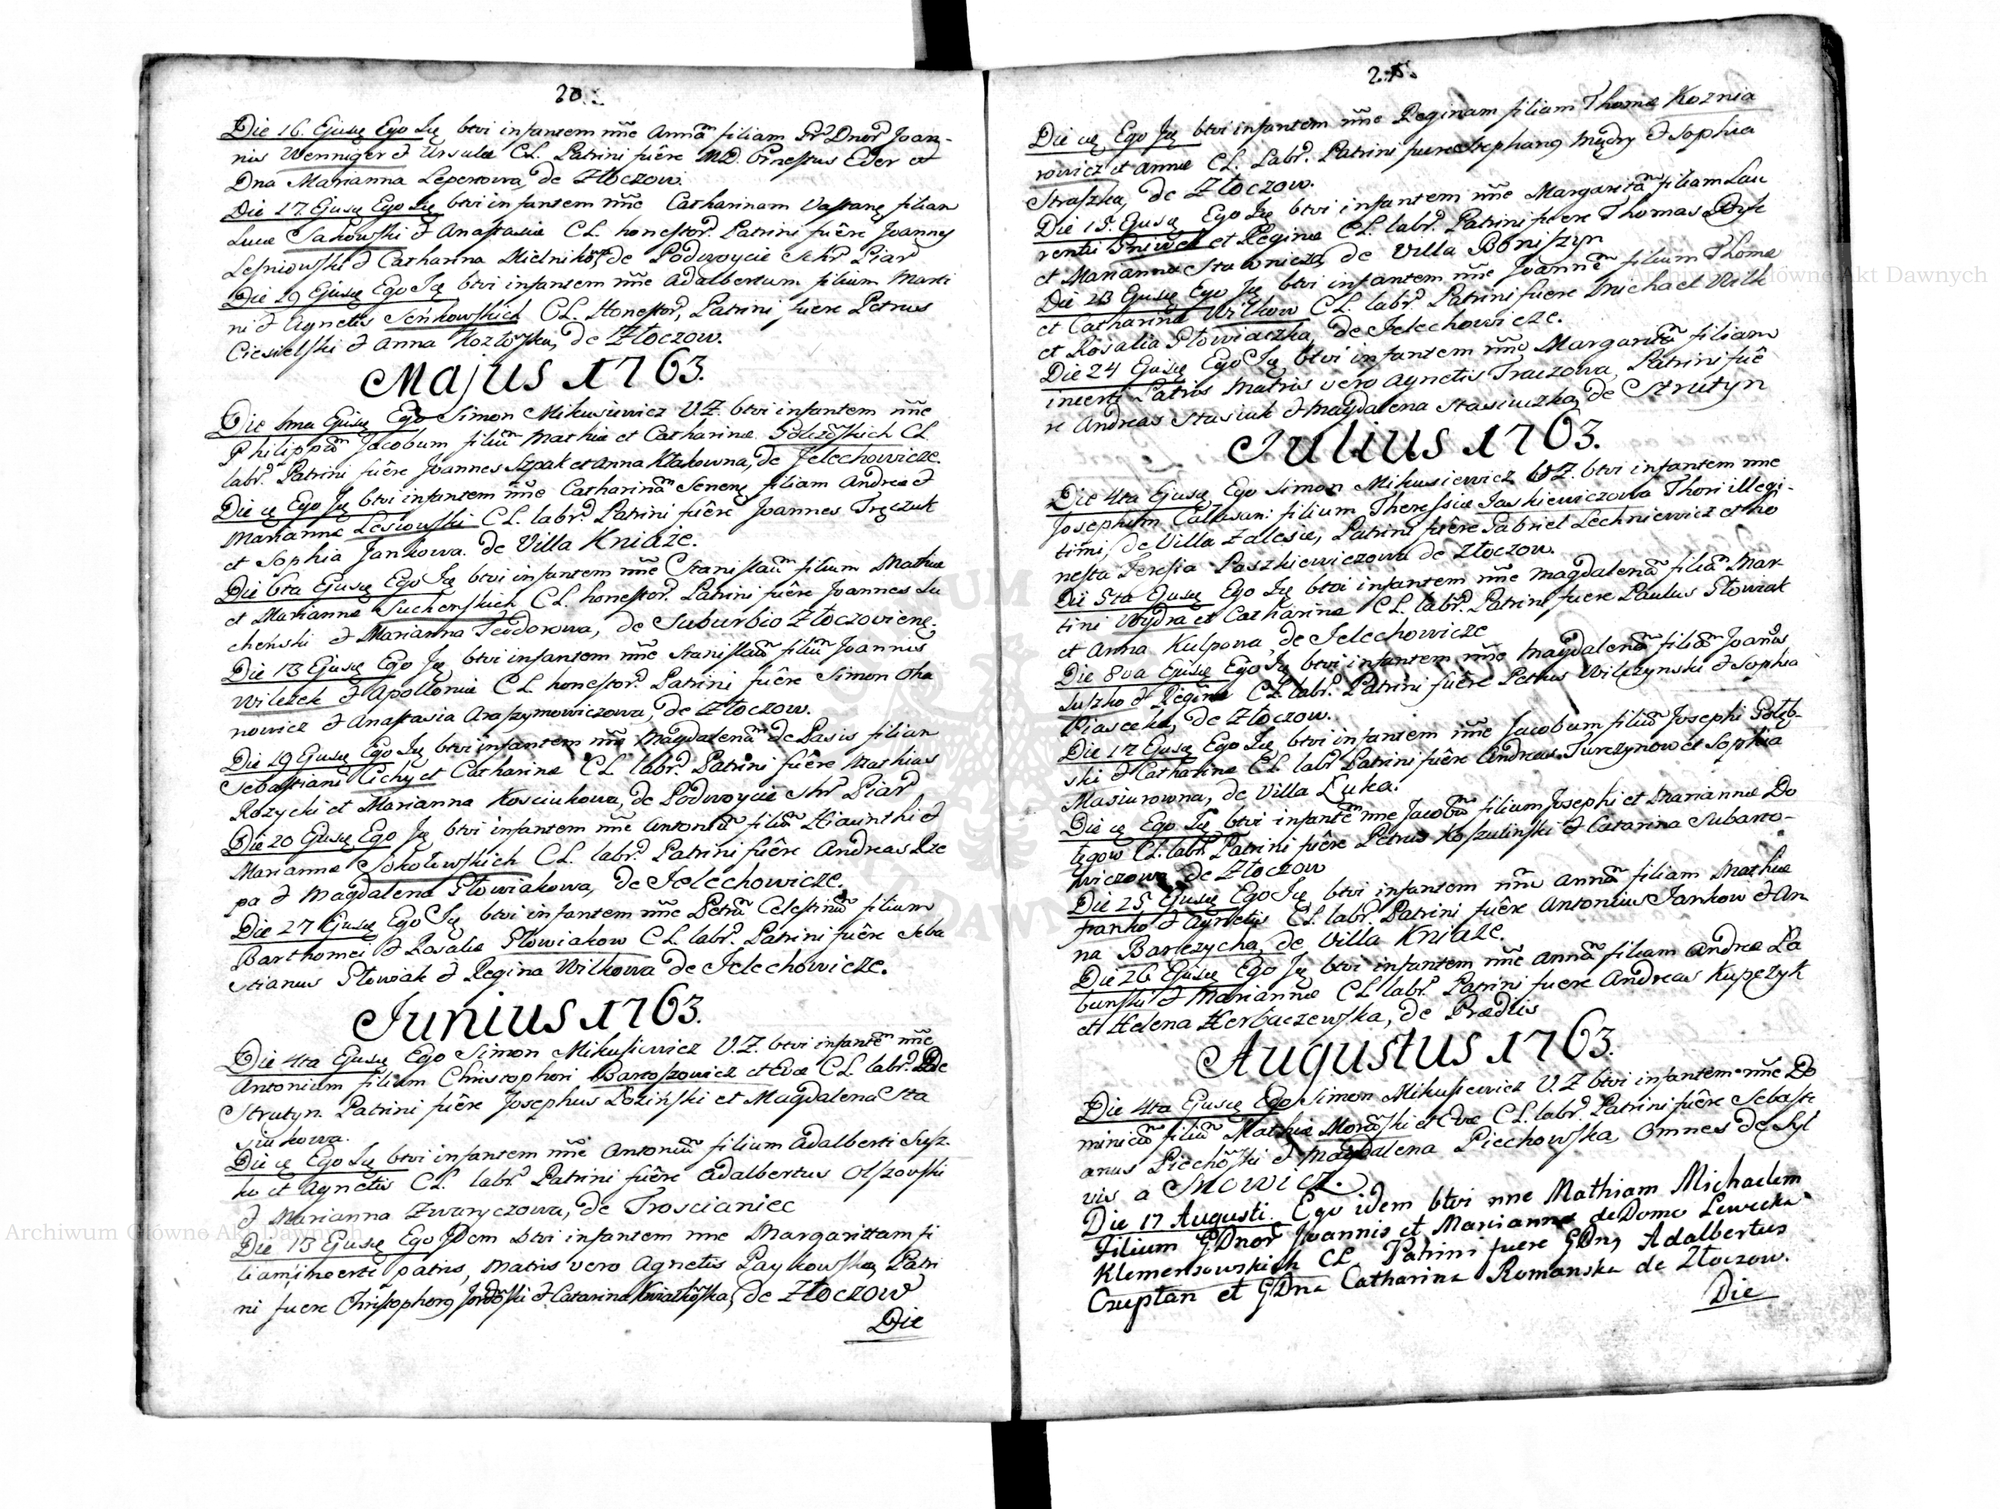 20.
Die 16. Ejusq Ego Ię btvi infantem nne Annam filiam Gr Dnor Joan-
nis Wenniger & Ursulæ CL. Patrini fuêre MD. Ernestus Eder et
Dna Marianna Leperowa, de Złoczow.
Die 17. Ejusq Ego Ię btvi infantem nne Catharinam filian
Lucæ Sakowski & Anastasiæ CL. honestor. Patrini fuêre Joannes
Lesniowski & Catharina Mielnikowa, de Podwoycie Schr Piar
Die 29 Ejusq Ego Ię btvi infantem nne Adalbertum filium Marti
ni & Agnetis Senkowskich CL. Honestor, Patrini fuere Petrus
Ciesielski & Anna Kozłoska, de Złoczow.
Majus 1763.
Die 1ma Ejusq Ego Simon Mikusiewicz V.Z. btvi infantem nne
Philippum Jacobum filium Mathiæ et Catharinæ CL.
labr. Patrini fuêre Joannes Szpak et Anna Kłakowna, de Jelechowicze.
Die eę Ego Ię btvi infantem nne Catharinam filiam Andreæ &
Mariannæ Lesiowski CL. labr. Patrini fuêre Joannes Tręczuk
et Sophia Jankowa. de Villa Kniaże.
Die 6ta Ejusq Ego Ię btvi infantem nne Stanislaum filium Mathiæ
et Mariannæ Suchenskich CL. honestor. Patrini fuêre Joannes Su
cheński & Marianna Teodorowa, de Suburbio Złoczoviene.
Die 13 Ejusq Ego Ię btvi infantem nne Stanislaum filium Joannis
Wilczek & Apolloniæ CL. honestor. Patrini fuêre Simon Oha
nowicz & Anastasia Araszymowiczowa, de Złoczow.
Die 19 Ejusq Ego Ię btvi infantem nne Magdalenam de Pasis filian
Sebastiani Cichy et Catharinæ CL labr. Patrini fuêre Mathias
Rożycki et Marianna Kosciukowa, de Podwoycie Schr Piar
Die 20 Ejusq Ego Ię btvi infantem nne Antonium filium Hiacinthi &
Mariannæ Sokołowskich CL. labr. Patrini fuêre Andreas Rze
pa & Magdalena Słowiakowa, de Jelechowicze.
Die 27 Ejusq Ego Ię btvi infantem nne Petrum Celestinum filium
Barthomei & Rosaliæ Słowiakow CL labr. Patrini fuêre Seba
stianus Słowiak & Regina Wilkowa de Jelechowicze.
Junius 1763.
Die 4ta Ejusq Ego Simon Mikusiewicz V.Z. btvi infantem nne
Antonium filium Christophori Bartoszowicz et Evæ CL labr. De
Strutyn. Patrini fuêre Josephus Łoziński et Magdalena Sta
siukowa.
Die eę Ego Ię btvi infantem nne Antonium filium Adalberti Susz
ko et Agnetis CL. labr. Patrini fuêre Adalbertus Olszoski
& Marianna Zwaryczowa, de Troscianiec
Die 13 Ejusq Ego Idem btvi infantem nne Margarittam fi
liam incerti patris, Matris vero Agnetis Paykowska, Patri
ni fuere Christophorq & Catarina Kwiatkoska, de Złoczow
Die
Die eę Ego Ię btvi infantem nne Reginam filiam Thomæ Koznia
rowicz et Annæ CL. Labr. Patrini fuere Stephanq Mądry & Sophia
Straszka, de Złoczow.
Die 15. Ejusq Ego Ię btvi infantem nne Margaritam filiam Lau
rentii et Reginæ CL. labr. Patrini fuere Thomas Byk
et Marianna Stawnicza, de Villa Boniszyn
Die 23 Ejusq Ego Ię btvi infantem nne Joannem filium Thomæ
et Catharinæ Wilkow CL. labr. Patrini fuere Michael Wilk
et Rosalia Słowiaczka, de Jelechowicze.
Die 24 Ejusq Ego Ię, btvi infantem nne Margaritam filiam
incerti Patris Matris vero Agnetis Traczowa, Patrini fue
re Andreas Stasiuk & Magdalena Stasiuczka, de Strutyn
Julius 1763.
Die 4ta Ejusq Ego Simon Mikusiewicz VZ. btvi infantem nne
Josephum filium Theressiæ Jaskiewiczowa Thori illegi-
timi, de Villa Zalesie, Patrini fuêre Gabriel Lechniewicz et ho
nesta Teresia Paszkiewiczowa de Złoczow.
Die 5ta Ejusq Ego Ię btvi infantem nne Magdalenam filiam Mar
tini Wydra et Catharinæ CL. labr. Patrini fuere Paulus Słowiak
et Anna Kulpowa, de Jelechowicze
Die 8va Ejusq Ego Ię btvi infantem nne Magdalenam filiam Joanis
Lutzko & Reginæ CL labr. Patrini fuêre Petrus Wilczynski & Sophia
Piasecka, de Złoczow.
Die 17 Ejusq Ego Ię, btvi infantem nne Jacobum filium Josephi Gołęb-
ski & Catharinæ CL labr Patrini fuêre Andreas Turczynow et Sophia
Masiurowna, de Villa Łuka.
Die eę Ego Ię btvi infantem nne Jacobum filium Josephi et Mariannæ Do
łęgow CL. labr. Patrini fuêre Petrus Koszulinski & Catarina Subarto-
wiczowa, de Złoczow
Die 25 Ejusq Ego Ię, btvi infantem nne Annam filiam Mathiæ
Franko & Agnetis CL. labr. Patrini fuêre Antonius Jankow & An
na Barczycha, de Villa Kniaże.
Die 26 Ejusq Ego Ię, btvi infantem nne Annam filiam Andreæ Ła
bunski & Mariannæ CL labr. Patrini fuere Andreas Kupczyk
et Helena Herbaczewska, de Prædiis
Augustus 1763.
Die 4ta Ejusq Ego Simon Mikusiewicz VZ btvi infantem nne Do
minicum filium Mathiæ Moroski et Evæ CL. labr. Patrini fuêre Sebasti
anus Piechoski & Magdalena Piechowska, Omnes de Syl
vis a Snowicz.
Die 17 Augusti. Ego idem btvi nne Mathiam Michaelem
Filium GDnor Joannis et Mariannæ de Domo Lewicka
Klemensowskich CL. Patrini fuere GDnq Adalbertus
Czuptan et GDna Catharina Romanska de Złoczow.
Die
Archiwum Główne Akt Dawnych
Archiwum Główne Akt Dawnych
ARCHIWUM
DAWNYCH